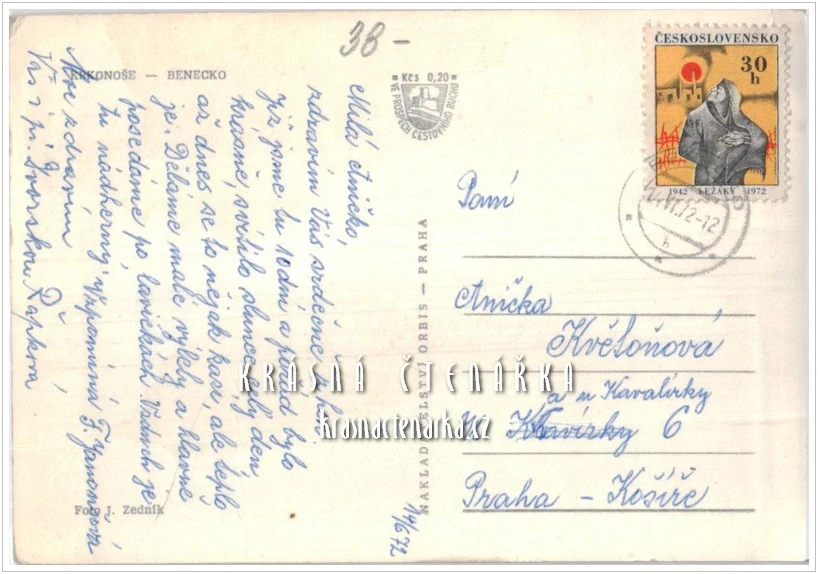 38 -
KRKONOŠE — BENECKO
Kčs 0,20
VE PROSPĚCH CESTOVNÍHO RUCHU
ČESKOSLOVENSKO
30
h
1942 LEŽÁKY 1972
VI.72-12
h
Milá Aničko,
zdravím Vás srdečně z hor.
Již jsme tu 10 dní a pořád bylo
krásně, svítilo slunce celý den,
až dnes se to nějak kazí, ale teplo
je. Děláme malé výlety a hlavně
posedáme po lavičkách. Vzduch je
tu nádherný. Vzpomíná F. Janoušová
Moc zdravím
Vás i pí. Dvorskou Řapková
14/6 72
Paní
Anička
Květoňová
a u Kavalírky
6
Praha - Košíře
NAKLADATELSTVÍ ORBIS — PRAHA
Foto J. Zedník
KRÁSNÁ ČTENÁŘKA
krasnactenarka.cz